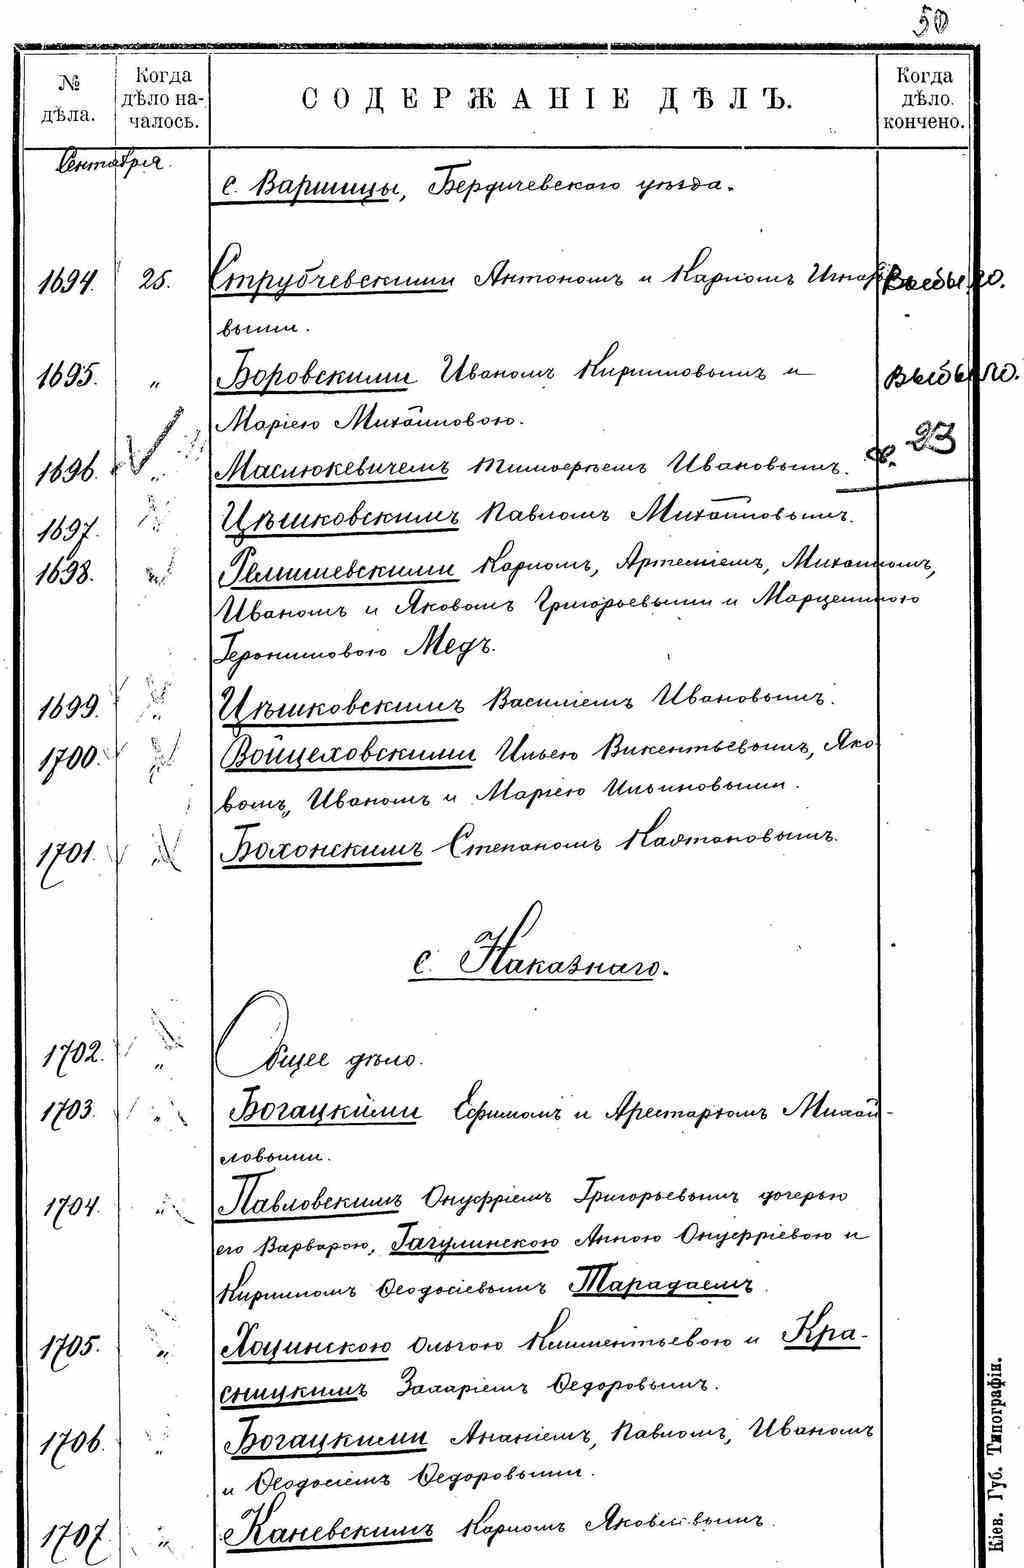 50
№ дѣла.
Когда дѣло на- чалось.
СОДЕРЖАНІЕ ДѢЛЪ.
Когда дѣло. кончено.
Сентября.
с. Варшицы, Бердичевскаго уѣзда.
1694. 25. Струбчевскими Антономъ и Карломъ Выбыло.
выми.
1695. „ Боровскими Иваномъ Кирилловымъ и Выбыло.
Маріею Михайловою.
1696. „ Маслюкевичемъ Тимофѣемъ Ивановымъ. 23
1697. Цѣшковскимъ Павломъ Михайловымъ.
1698. „ Ремишевскими Карломъ, Артеміемъ, Михаиломъ,
Иваномъ и Яковомъ Григорьевыми и Марцелиною
Геронимовою Медъ.
1699. „ Цѣшковскимъ Василіемъ Ивановымъ.
1700. „ Войцеховскими Ильею Викентьевымъ, Яко-
вомъ, Иваномъ и Маріею Ильиновыми.
1701. „ Бохонскимъ Степаномъ Каэтановымъ.
с. Наказнаго.
1702. „ Общее дѣло.
1703. „ Богацкими Ефимомъ и Арестархомъ Михай-
ловыми.
1704. „ Павловскимъ Онуфріемъ Григорьевымъ дочерью
его Варварою, Гагулинскою Анною Онуфріевою и
Кирилломъ Ѳеодосіевымъ Тарадаемъ.
1705. „ Хоцинскою Ольгою Климентьевою и Кра-
сницкимъ Захаріемъ Ѳедоровымъ.
1706. „ Богацкими Ананіемъ, Павломъ, Иваномъ
и Ѳеодосіемъ Ѳедоровыми.
1707. „ Каневскимъ Карломъ Яковлевымъ.
Кіев. Губ. Типографіи.